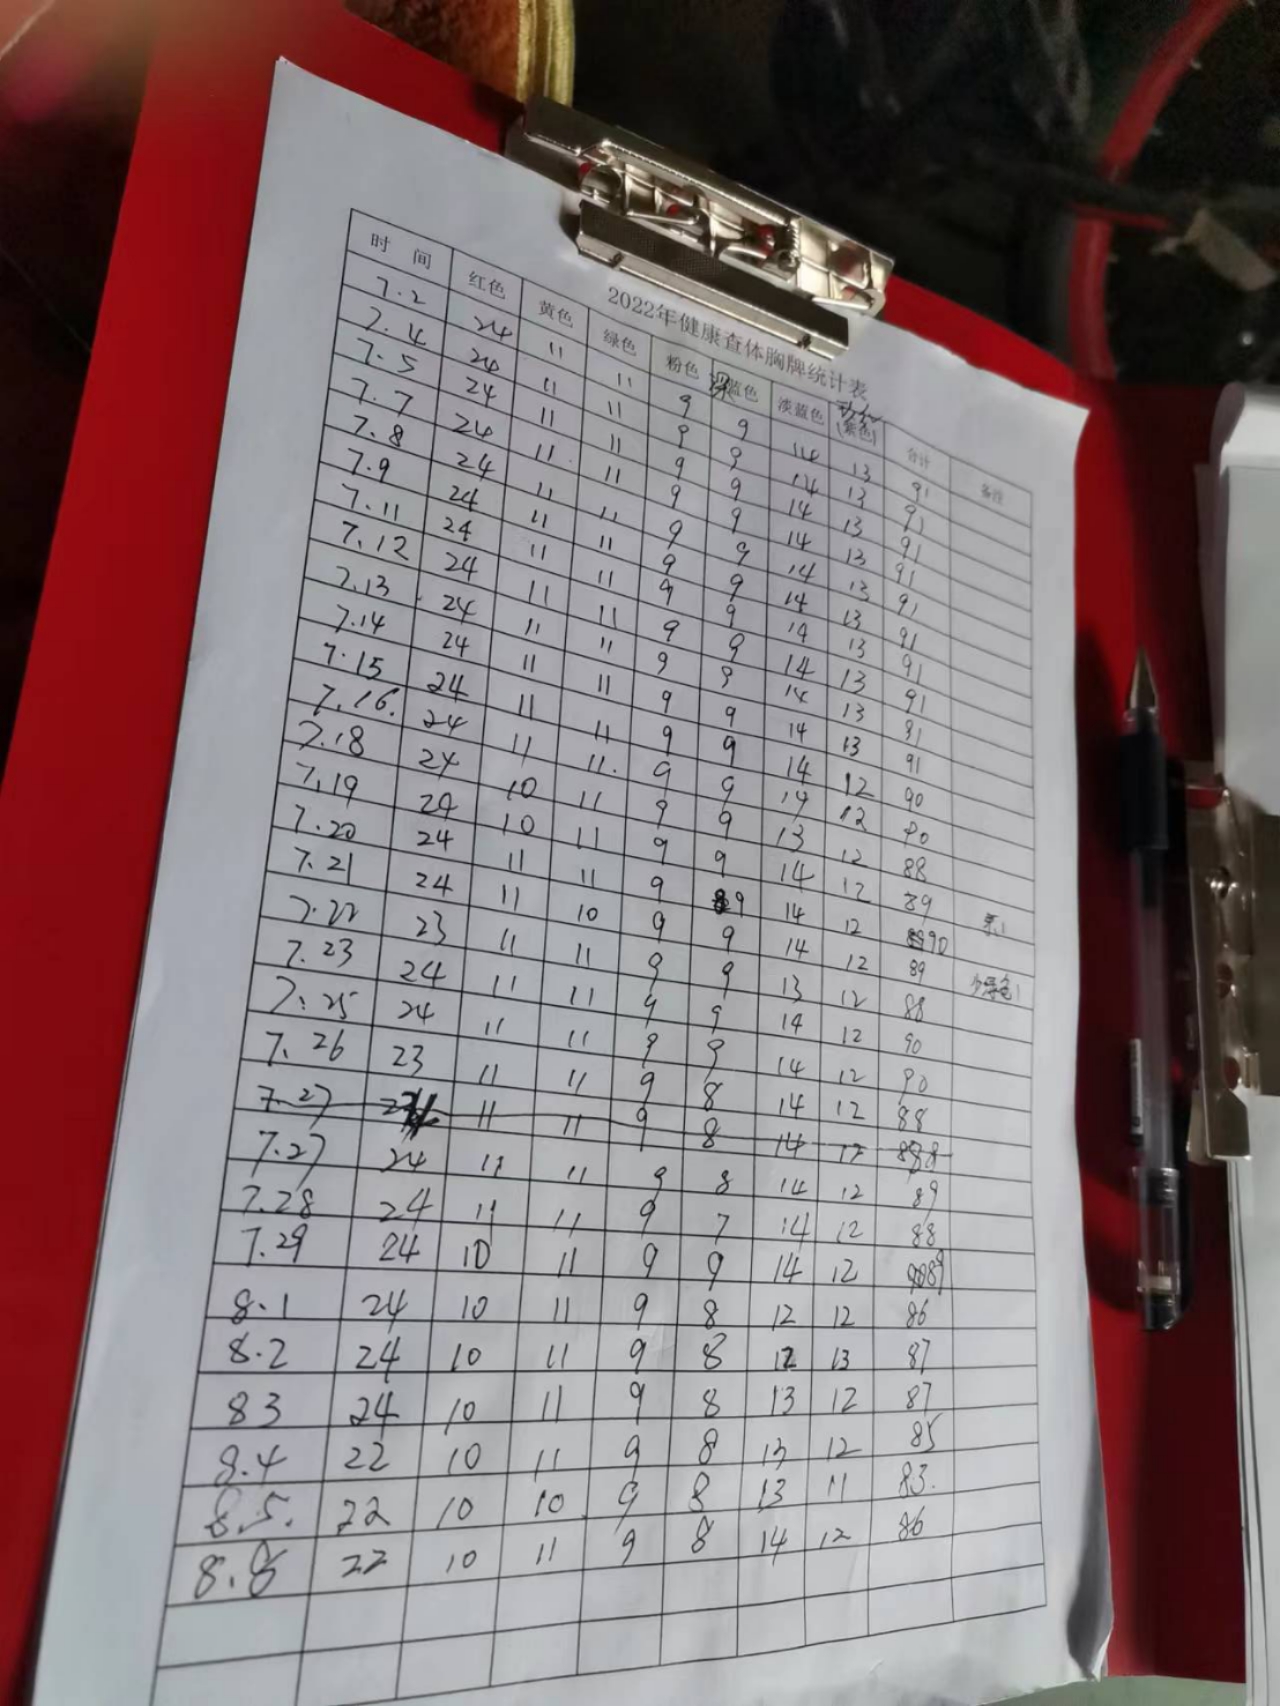 2022年健康查体胸牌统计表
时 间 红色 黄色 绿色 粉色 深蓝色 淡蓝色 (紫色) 合计 备注
7.2 24 11 11 9 9 14 13 91
7.4 24 11 11 9 9 14 13 91
7.5 24 11 11 9 9 14 13 91
7.7 24 11 11 9 9 14 13 91
7.8 24 11 11 9 9 14 13 91
7.9 24 11 11 9 9 14 13 91
7.11 24 11 11 9 9 14 13 91
7.12 24 11 11 9 9 14 13 91
7.13 24 11 11 9 9 14 13 91
7.14 24 11 11 9 9 14 13 91
7.15 24 11 11 9 9 14 12 90
7.16. 24 11 11. 9 9 14 12 90
7.18 24 10 11 9 9 13 12 88
7.19 24 10 11 9 9 14 12 89
7.20 24 11 11 9 9 14 12 90
7.21 24 11 10 9 9 14 12 89 少绿色1
7.22 23 11 11 9 9 13 12 88
7.23 24 11 11 9 9 14 12 90
7.25 24 11 11 9 9 14 12 90
7.26 23 11 11 9 8 14 12 88
7.27 11 11 9 8 14 12
7.27 24 11 11 9 8 14 12 89
7.28 24 11 11 9 7 14 12 88
7.29 24 10 11 9 9 14 12 89
8.1 24 10 11 9 8 12 12 86
8.2 24 10 11 9 8 12 13 87
8 3 24 10 11 9 8 13 12 87
8.4 22 10 11 9 8 13 12 85
8.5. 22 10 10 9 8 13 11 83.
8.8 22 10 11 9 8 14 12 86